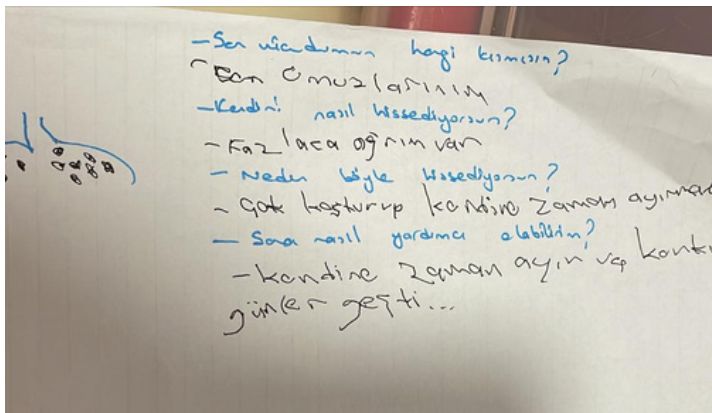 - Sen vücudumun hangi kısmısın?
- Ben omuzlarınım
- Kendini nasıl hissediyorsun?
- Fazlaca ağrım var
- Neden böyle hissediyorsun?
- Çok koşturup kendine zaman ayırma
- Sana nasıl yardımcı olabilirim?
- kendine zaman ayır ve
günler geçti...